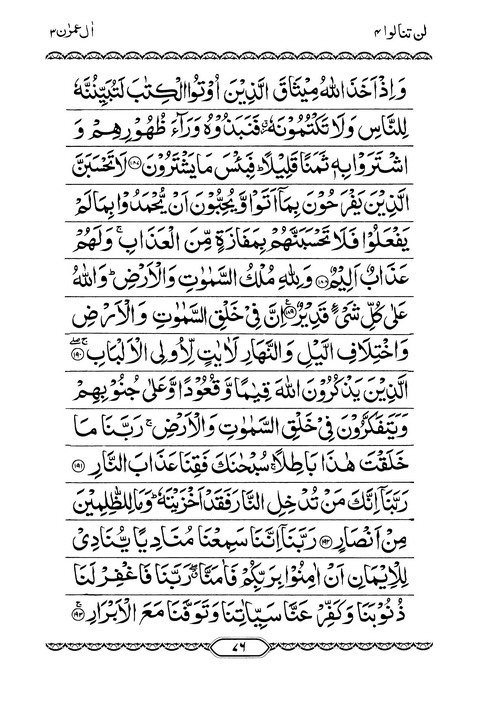 لن تنالوا ۴
اٰل عمرٰن ۳
وَاِذْ اَخَذَ اللّٰهُ مِيْثَاقَ الَّذِيْنَ اُوْتُوا الْكِتٰبَ لَتُبَيِّنُنَّهٗ
لِلنَّاسِ وَلَا تَكْتُمُوْنَهٗ ؗ فَنَبَذُوْهُ وَرَآءَ ظُهُوْرِهِمْ وَ
اشْتَرَوْا بِهٖ ثَمَنًا قَلِيْلًا ؕ فَبِئْسَ مَا يَشْتَرُوْنَ ﴿۱۸۷﴾ لَا تَحْسَبَنَّ
الَّذِيْنَ يَفْرَحُوْنَ بِمَاۤ اَتَوْا وَّيُحِبُّوْنَ اَنْ يُّحْمَدُوْا بِمَا لَمْ
يَفْعَلُوْا فَلَا تَحْسَبَنَّهُمْ بِمَفَازَةٍ مِّنَ الْعَذَابِ ۚ وَلَهُمْ
عَذَابٌ اَلِيْمٌ ﴿۱۸۸﴾ وَلِلّٰهِ مُلْكُ السَّمٰوٰتِ وَالْاَرْضِ ؕ وَاللّٰهُ
عَلٰى كُلِّ شَىْءٍ قَدِيْرٌ ﴿۱۸۹﴾ اِنَّ فِيْ خَلْقِ السَّمٰوٰتِ وَالْاَرْضِ
وَاخْتِلَافِ الَّيْلِ وَالنَّهَارِ لَاٰيٰتٍ لِّاُولِي الْاَلْبَابِ ﴿۱۹۰﴾
الَّذِيْنَ يَذْكُرُوْنَ اللّٰهَ قِيٰمًا وَّقُعُوْدًا وَّعَلٰى جُنُوْبِهِمْ
وَيَتَفَكَّرُوْنَ فِيْ خَلْقِ السَّمٰوٰتِ وَالْاَرْضِ ۚ رَبَّنَا مَا
خَلَقْتَ هٰذَا بَاطِلًا ۚ سُبْحٰنَكَ فَقِنَا عَذَابَ النَّارِ ﴿۱۹۱﴾
رَبَّنَاۤ اِنَّكَ مَنْ تُدْخِلِ النَّارَ فَقَدْ اَخْزَيْتَهٗ ؕ وَمَا لِلظّٰلِمِيْنَ
مِنْ اَنْصَارٍ ﴿۱۹۲﴾ رَبَّنَاۤ اِنَّنَا سَمِعْنَا مُنَادِيًا يُّنَادِيْ
لِلْاِيْمَانِ اَنْ اٰمِنُوْا بِرَبِّكُمْ فَاٰمَنَّا ۖ رَبَّنَا فَاغْفِرْ لَنَا
ذُنُوْبَنَا وَكَفِّرْ عَنَّا سَيِّاٰتِنَا وَتَوَفَّنَا مَعَ الْاَبْرَارِ ﴿۱۹۳﴾
۷۶